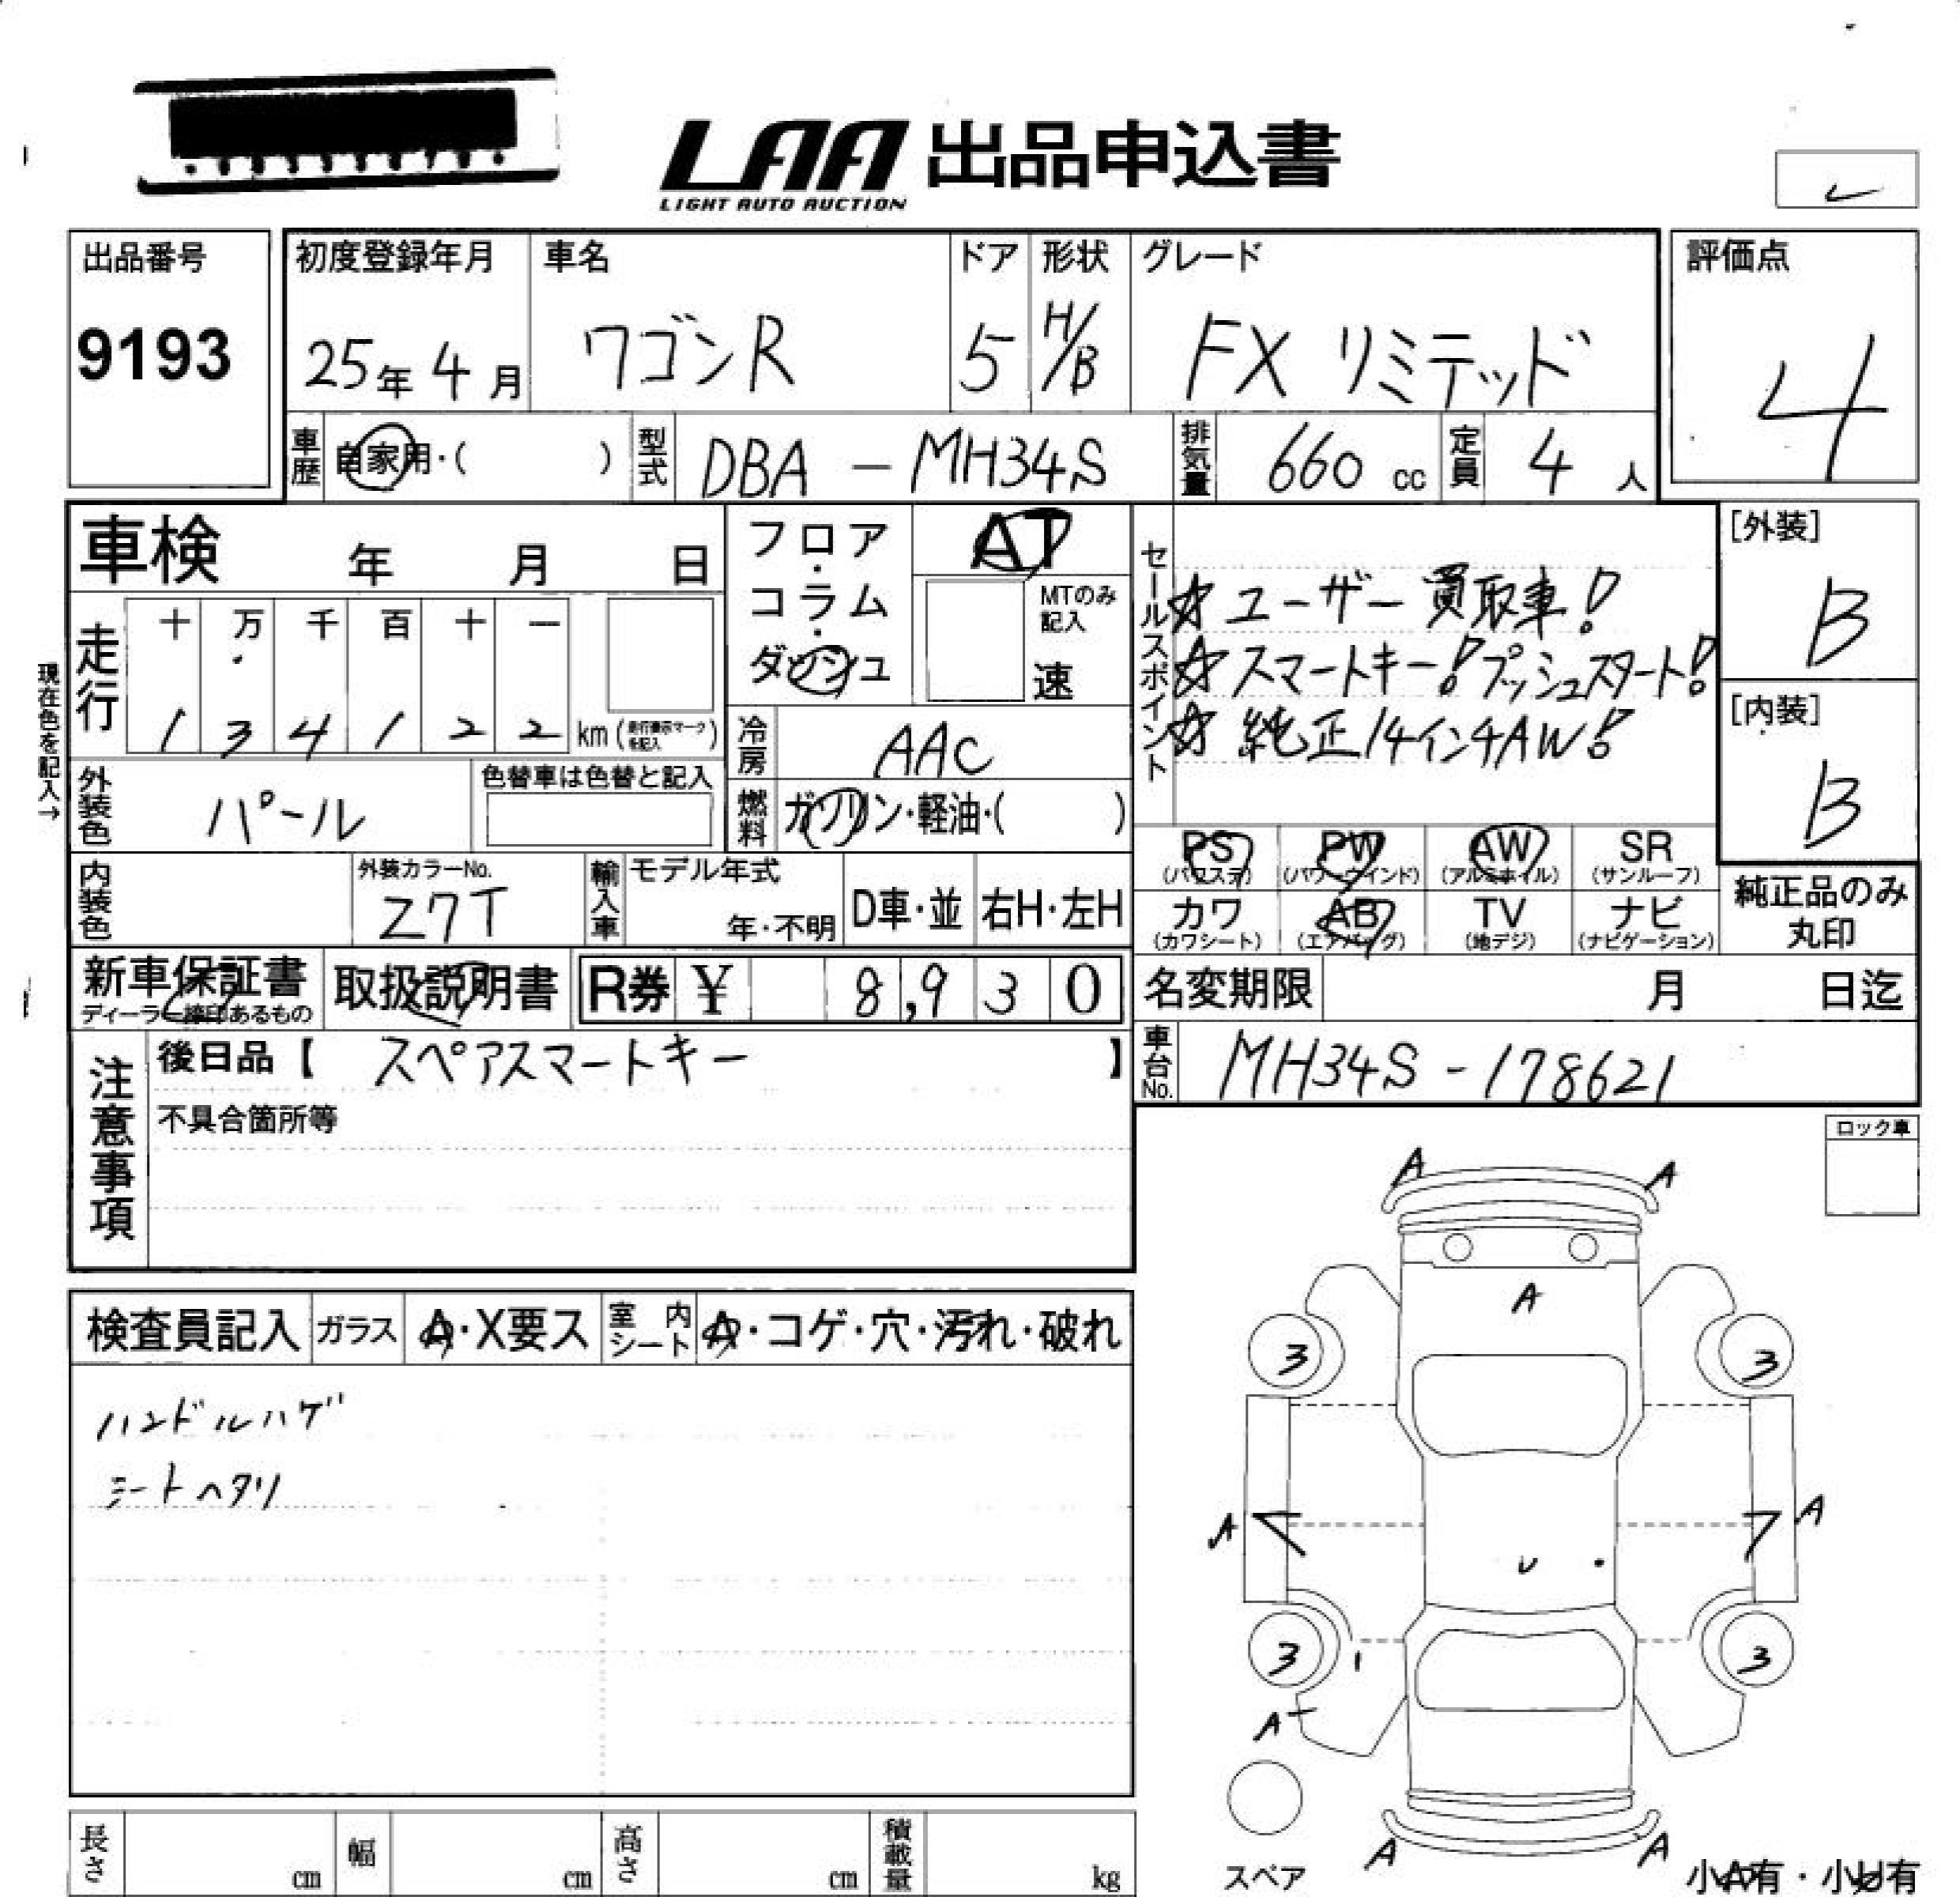 LAA 出品申込書
LIGHT AUTO AUCTION
出品番号
9193
初度登録年月
25年 4月
車名
ワゴンR
ドア
5
形状
H/B
グレード
FX リミテッド
評価点
4
車歴
自家用・( )
型式
DBA - MH34S
排気量
660 cc
定員
4 人
車検 年 月 日
フロア・コラム・ダッシュ
AT
MTのみ記入
速
セールスポイント
☆ ユーザー買取車!
☆ スマートキー! プッシュスタート!
☆ 純正14インチAW!
[外装]
B
[内装]
B
現在色を記入→
走行
十 万 千 百 十 一
1 3 4 1 2 2 km
冷房
AAC
外装色
パール
色替車は色替と記入
燃料
ガソリン・軽油・( )
PS (パワステ)
PW (パワーウインド)
AW (アルミホイル)
SR (サンルーフ)
カワ (カワシート)
AB (エアバッグ)
TV (地デジ)
ナビ (ナビゲーション)
純正品のみ丸印
内装色
外装カラーNo.
Z7T
輸入車
モデル年式
年・不明
D車・並
右H・左H
新車保証書
ディーラー捺印あるもの
取扱説明書
R券 ¥ 8,930
名変期限 月 日迄
車台No.
MH34S-178621
注意事項
後日品【 スペアスマートキー 】
不具合箇所等
ロック車
検査員記入
ガラス
A・X要ス
室内シート
A・コゲ・穴・汚れ・破れ
ハンドルハゲ
シートヘタリ
A A
A
3 3
A A
U
3 3
A
A A
スペア
小A有・小U有
長さ cm
幅 cm
高さ cm
積載量 kg